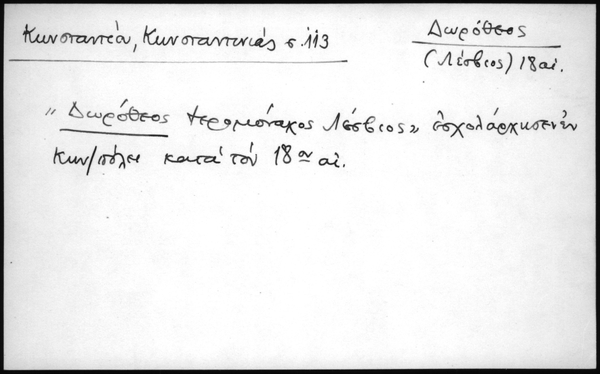 Κωνσταντίου, Κωνσταντινιάς σ. 113
Δωρόθεος
(Λέσβιος) 18 αἰ.
"Δωρόθεος ἱερομόναχος Λέσβιος" ἐσχολάρχησεν ἐν
Κων/πόλει κατὰ τὸν 18ον αἰ.